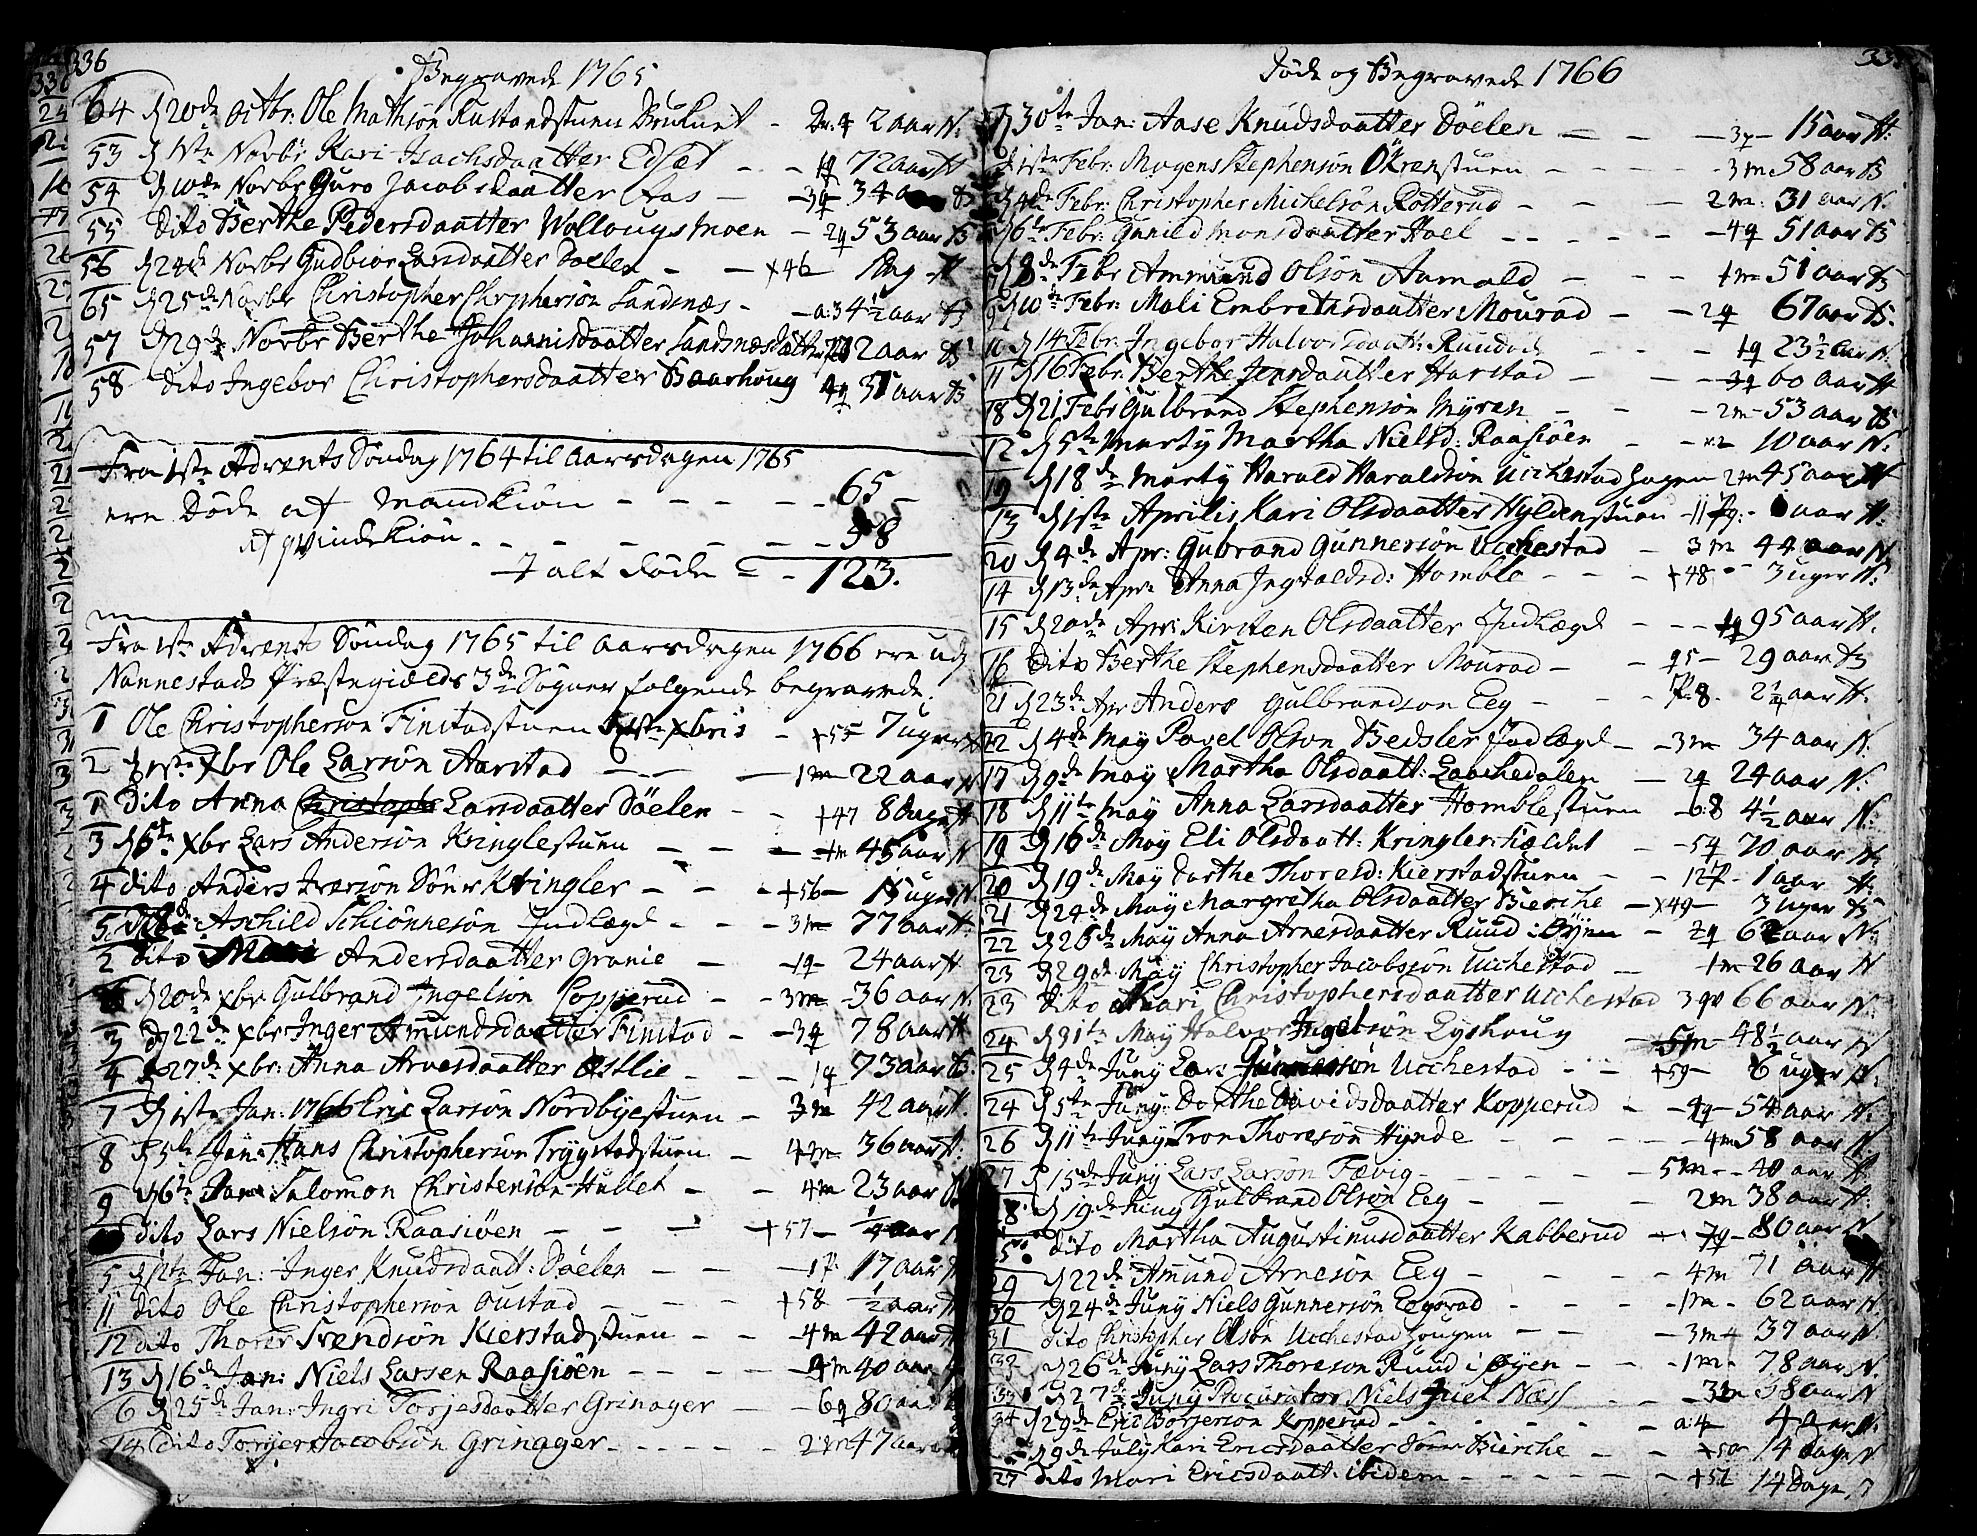 336
Begravede 1765
64 d 20de Octbr: Ole Mathisøn Rustandstuen Druknet - 2 aar N.
53 d 1ste Novbr: Kari Isachsdaatter Edsæt - - 1q 72 aar H
54 d 10de Novbr Guro Jacobsdaatter Aas - - 3q 34 B
55 dito Berthe Pedersdaatter Wollougsmoen - 2q 53 aar B
56 d 24de Novbr Gudbior Larsdaatter Døelen - - x46 Dag H
65 d 25de Novbr Christopher Chrphersøn Sandsnæs - a: 3 4 1/2 aar B
57 d 29de Novbr Berthe Johannisdaatter Sandsnæs 2 aar B
58 dito Ingebor Christophersdaatter Baarhoug 4q 31 aar B
Fra 1ste Advents Søndag 1764 til aarsdagen 1765
ere Døde af Mandkiøn - - - - - 65
af qvindekiøn - - - - - - 58
I alt døde - - 123.
Fra 1ste Advents Søndag 1765 til aarsdagen 1766 ere udj
Nannestads Præstegields 3de Sogner følgende begravede:
1 Ole Christophersøn Finstadstuen 1ste Xbris - +55 7 uger
2 d 1ste Xbr Ole Larsøn Aarstad - - - 1m 22 aar N
1 dito Anna Christophs Larsdaatter Døelen - - +47 8 Dage H
3 d 6te Xbr Lars Andersøn Kringlestuen - - - 1m 45 aar N
4 dito Anders Iversøn Sønr Kringler - - - +56 - uger N.
5 d 8de: Aschild Schiønnesøn Indlægd - - - 3m 77 aar H.
2 dito Mari Andersdaatter Granie - - 1q - 24 aar H
d 20de Xbr. Gulbrand Ingelsøn Copperud - - 3m - 36 aar N.
3 d 22de Xbr Inger Amundsdaatter Finstad - - 3q 78 aar H
4 d 27de Xbr: Anna Arvesdaatter Østlie - - - 1q 73 aar B.
7 d 1ste Jan: 1766 Eric Larsøn Nordbyestuen - 3m 42 aar
8 d 5te Jan: Hans Christophersøn Trygstadstuen - 4m 36 aar H.
9 d 6te Jan: Salomon Christensøn Hullet - - 4m 23 aar
dito Lars Nielsøn Raasiøen - - - +57 - 1/4 aar
5 d 12te Jan: Inger Knudsdaatt: Døelen - - - 1 p. 17 aar
11 dito Ole Christophersøn Oustad - - - +58 1/2 aar
12 dito Thorer Svendsøn Kierstadstuen - - - 4m 42 aar
13 d 16de Jan: Niels Larsen Raasiøen - - - - 4m 40 aar
6 d 25de Jan: Ingri Torjesdaatter Grinager - - - 6q 80 aar
14 dito Torger Jacobsøn Grinager - - - - - 2m 47 aar
Døde og Begravede 1766
d 30te Jan: Aase Knudsdaatter Døelen - - - 3q - 15 aar H:
d 1ste Febr: Mogens Stephensøn Økrenstuen - - - - 3m 58 aar B
d 4de Febr: Christopher Michelsøn Rotterud - - - - 2m: 31 aar N.
d 6te Febr: Gunild Monsdaatter Hoel - - - - 4q 51 aar B
d 8de Febr Ammund Olsøn Aamold - - - - 1m 51 aar B
9 d 10de Febr: Mali Embrethsdaatter Mourad - - 2q 67 aar B.
10 d 14 Febr: Ingebor Halvorsdaatt: Ruudod - - - 1q 23 1/2 aar N.
11 d 16 Febr: Berthe Jensdaatter Harstad - - - 3q 60 aar H
18 d 21 Febr Gulbrand Stephensøn Myren - - - 2m - 53 aar B
12 d 5te Marty Martha Nielsd: Raasiøen - - - 10 aar N.
19 d 18de Marty Harald Haraldsøn Ucchestad hagen 2m 45 aar N
13 d 1ste Aprilis Kari Olsdaatter Hyldenstuen - 11 aar H.
20 d 4de Apr: Gubrand Gunnersøn Ucchestad - 3m 44 aar N
14 d 13de Apr: Anna Ingvaldsd: Homble - - - +48 - - 3 uger N.
15 d 20de Apr: Kirsten Olsdaatter Indlægd - - - 1q 95 aar H.
16 dito Berthe Stephensdaatter Mourad - - q5 - 29 aar B
21 d 23de Apr Anders Gulbrandsøn Eeg - - - P. 8. 2 1/4 aar H.
22 d 4de May Povel Olsøn Bedsler Indlægd - - 3m 34 aar N.
17 d 9de May Martha Olsdaatt: Laachedalen - 2q 24 aar N.
18 d 11te May Anna Larsdaatter Homblestuen - b: 8 4 1/2 aar N.
19 d 16de May Eli Olsdaatt: Kringler:hældet - - 5q 70 aar N
20 d 19de May Dorthe Thoresd: Kierstadstuen - - 12p - 1 aar H.
21 d 24de May Margretha Olsdaatter Bierche - x49 - 3 uger B
22 d 26de May Anna Arnesdaatter Ruud i Øyen - 2q 62 aar N.
23 d 29de May Christopher Jacobsøn Ucchestad - 1m 26 aar N
23 dito Kari Christophersdaatter Ucchestad 3qv 66 aar N.
24 d 31te May Halvor Ingelsøn Eyshoug - 5m 48 1/2 aar N
25 d 4de Juny Lars Gunnersøn Ucchestad - - - +59 - 6 uger N.
24 d 5te Juny: Dorthe Davidsdaatter Kopperud - - 4q - 54 aar N.
26 d 11te Juny Tron Thoresøn Hynde - - - - 4m 58 aar N
27 d 15de Juny Lars Larsøn Fævig - - - - - 5m - - 40 aar H.
8 d 19de Juny Gulbrand Olsøn Eeg - - - - 2m 38 aar H.
dito Martha Augustinusdaatter Kabberud - - 7q - 80 aar N
29 d 22de Amund Arnesøn Eeg - - - - 4m 71 aar H
30 d 24de Juny Niels Gunnersøn Eegsrad - - - - 1m - 62 aar N.
31 dito Christopher Olsøn Ucchestad hougen - - - 3m 37 aar N.
32 d 26de Juny Lars Thoresøn Ruud i Øyen - - - 1m - 78 aar N.
33 d 27de Juny Procurator Niels Juel Næss - - 3m 38 aar N
34 d 29de Eric Børgersøn Kopperud - - - - - a: 4 4 aar N.
d 9de July Kari Ericsdaatter Sønr Bierche - - +50 14 dage N
27 dito Mari Ericsdaatt: ibidem - - - - - - +51 14 Dage